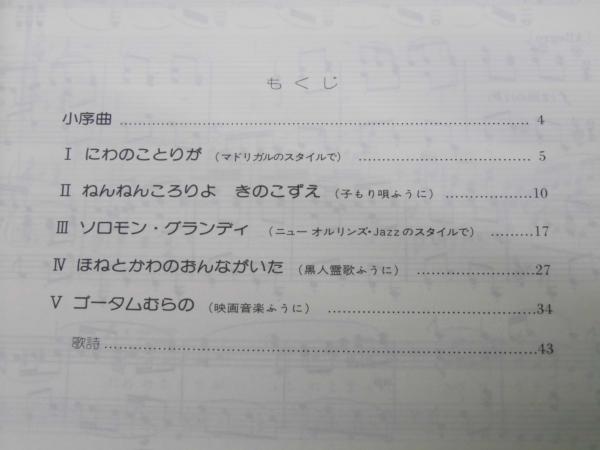 もくじ
小序曲 4
Ⅰ にわのことりが (マドリガルのスタイルで) 5
Ⅱ ねんねんころりよ きのこずえ (子もり唄ふうに) 10
Ⅲ ソロモン・グランディ (ニュー オルリンズ・Jazzのスタイルで) 17
Ⅳ ほねとかわのおんながいた (黒人霊歌ふうに) 27
Ⅴ ゴータムむらの (映画音楽ふうに) 34
歌詩 43